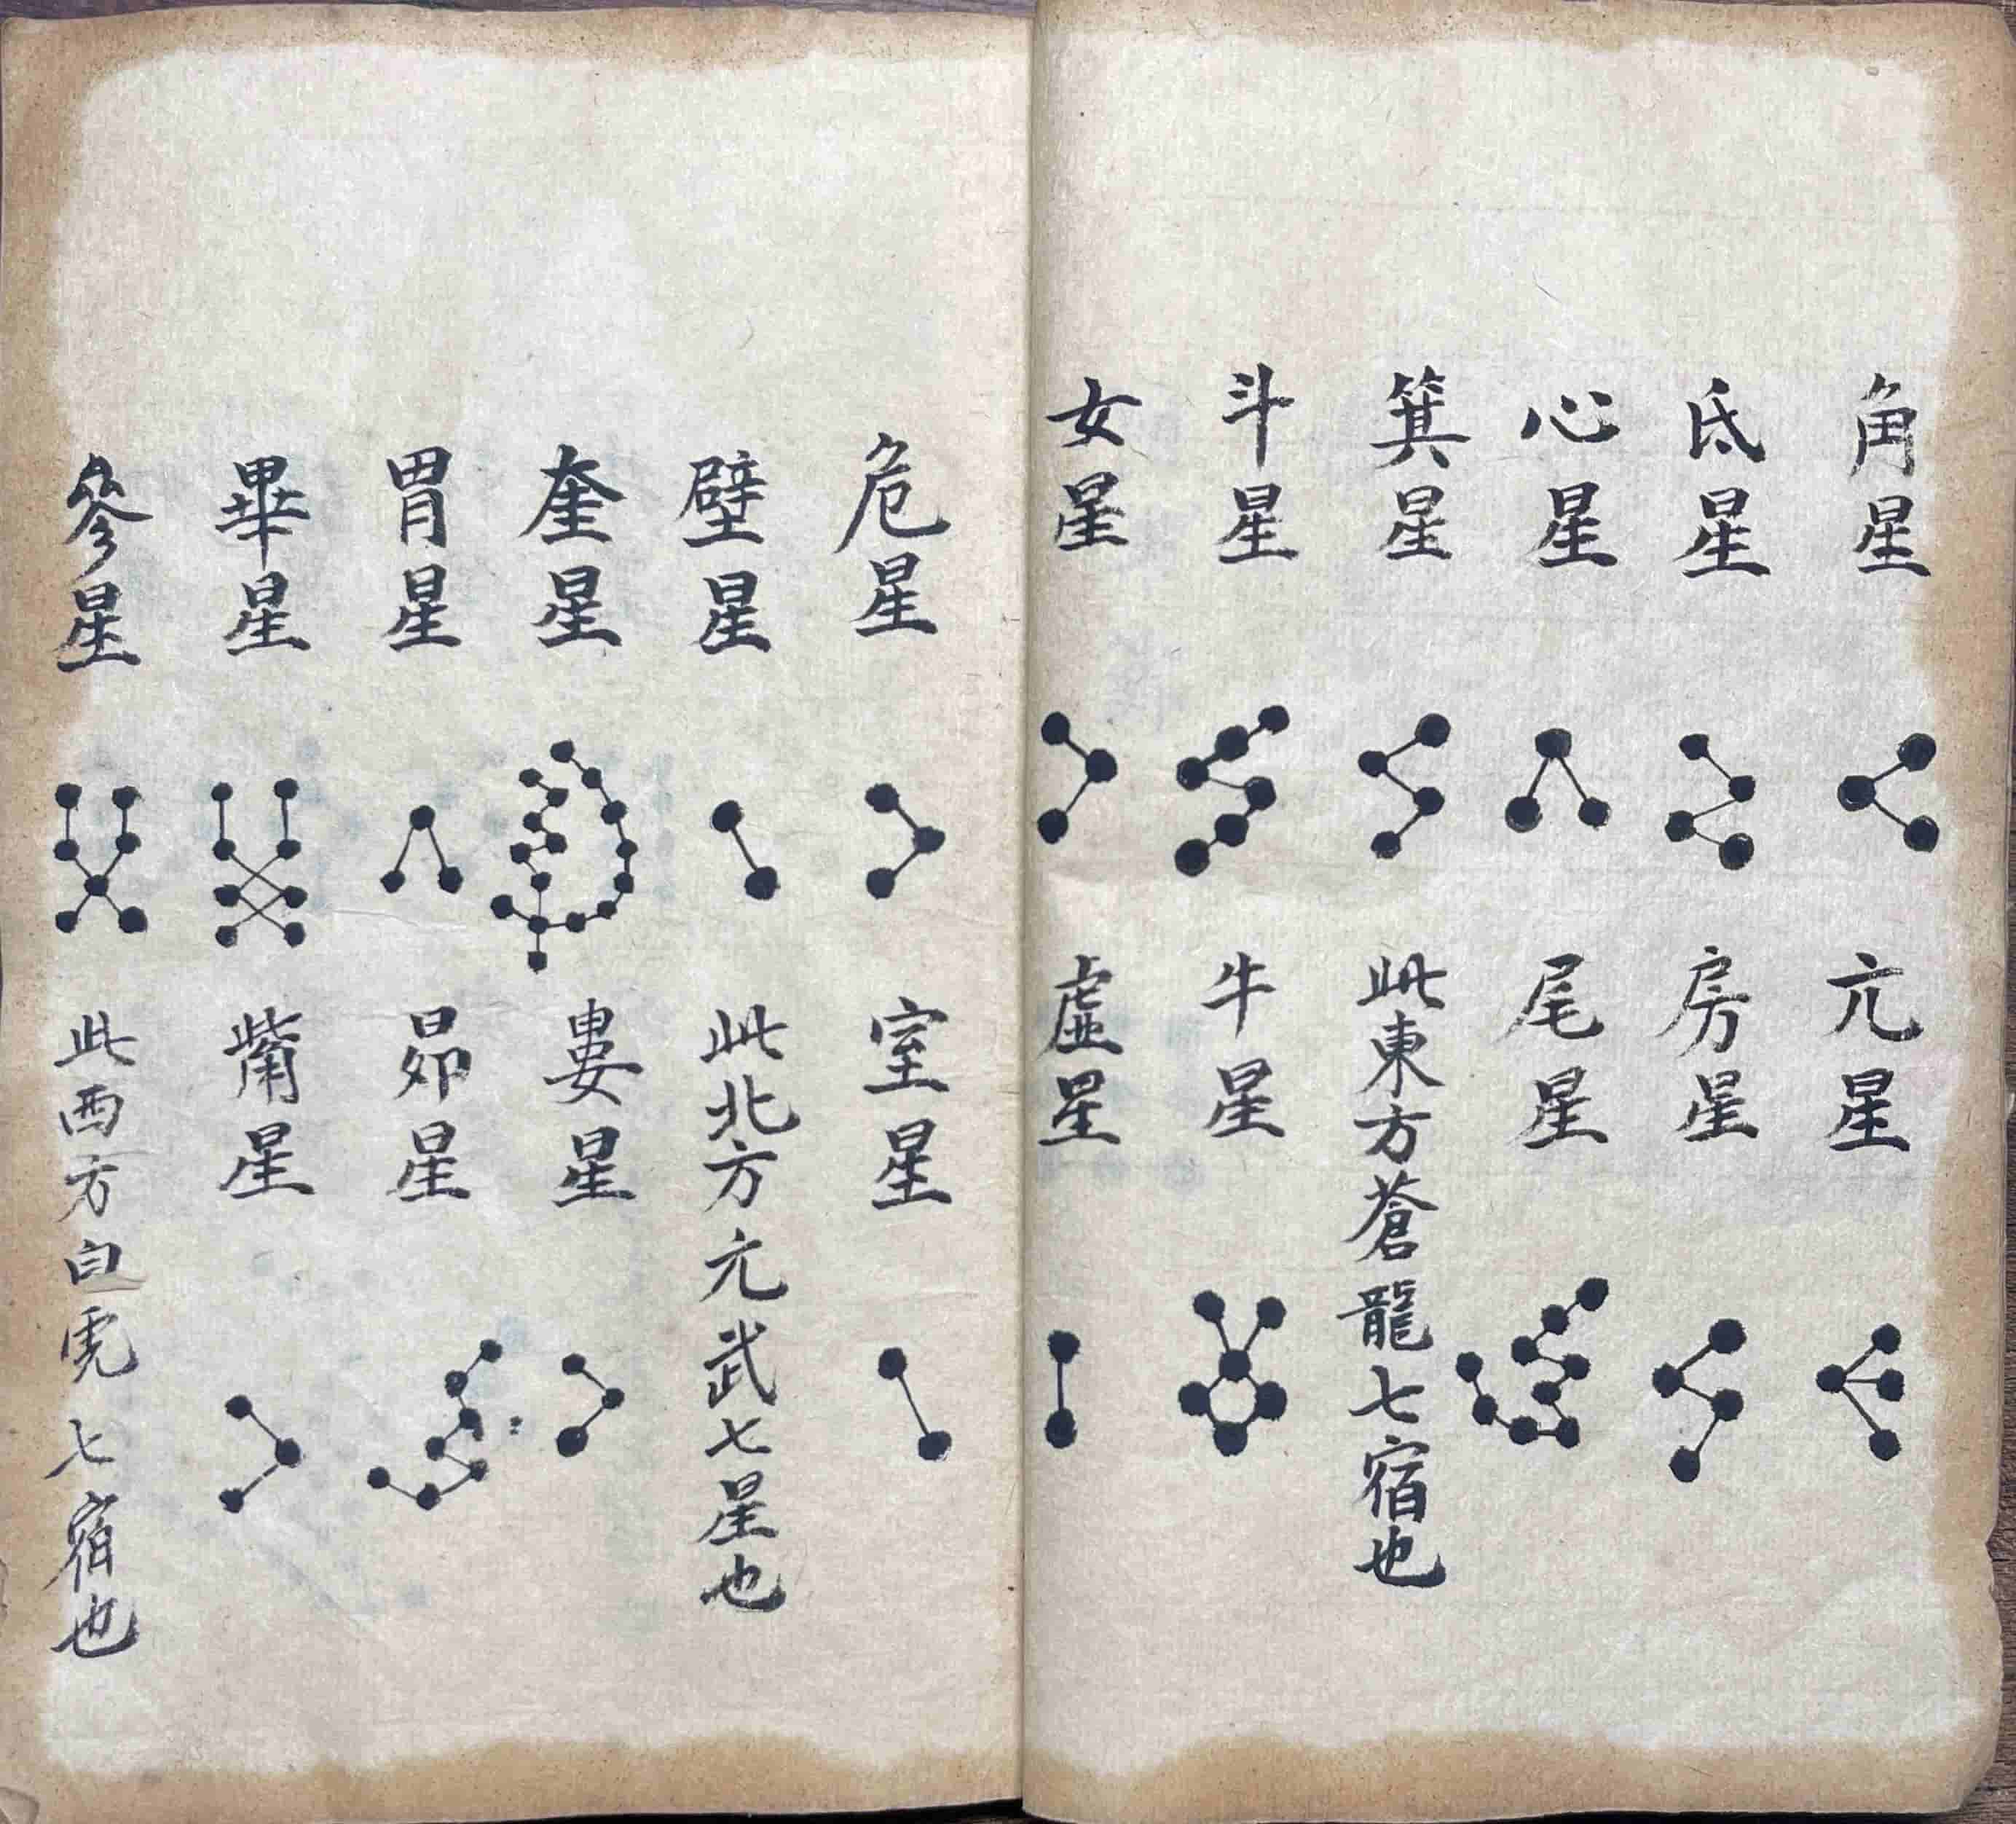 角星 亢星
氐星 房星
心星 尾星
箕星 此東方蒼龍七宿也
斗星 牛星
女星 虛星
危星 室星
壁星 此北方亢武七星也
奎星 婁星
胃星 昴星
畢星 觜星
參星 此西方白虎七宿也